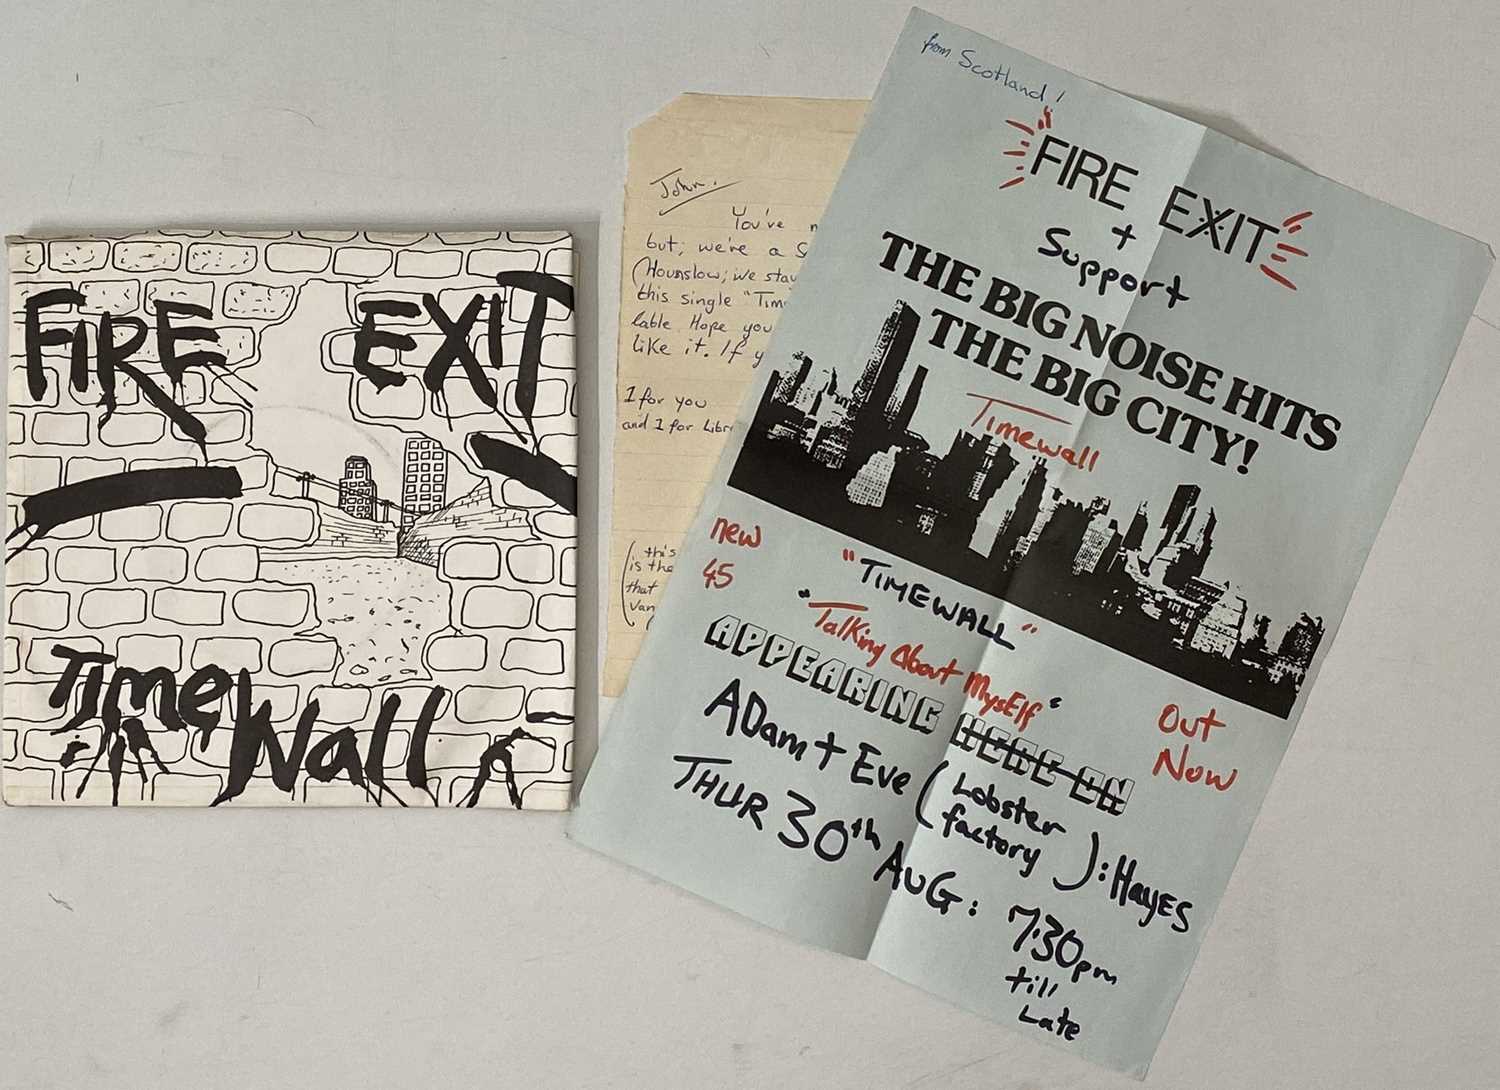 FIRE EXIT
Time Wall
John.
You've
but; we're a
(Hounslow; we stay
this single "Time
lable. Hope you
like it. If
1 for you
and 1 for
(this
is the
that
from Scotland!
FIRE EXIT
+
Support
THE BIG NOISE HITS
THE BIG CITY!
Timewall
new
45
"TIMEWALL"
"Talking About MysElf"
Out
Now
APPEARING HERE ON
ADam + Eve (Lobster factory): HayES
THUR 30th AUG: 7.30pm
till
Late